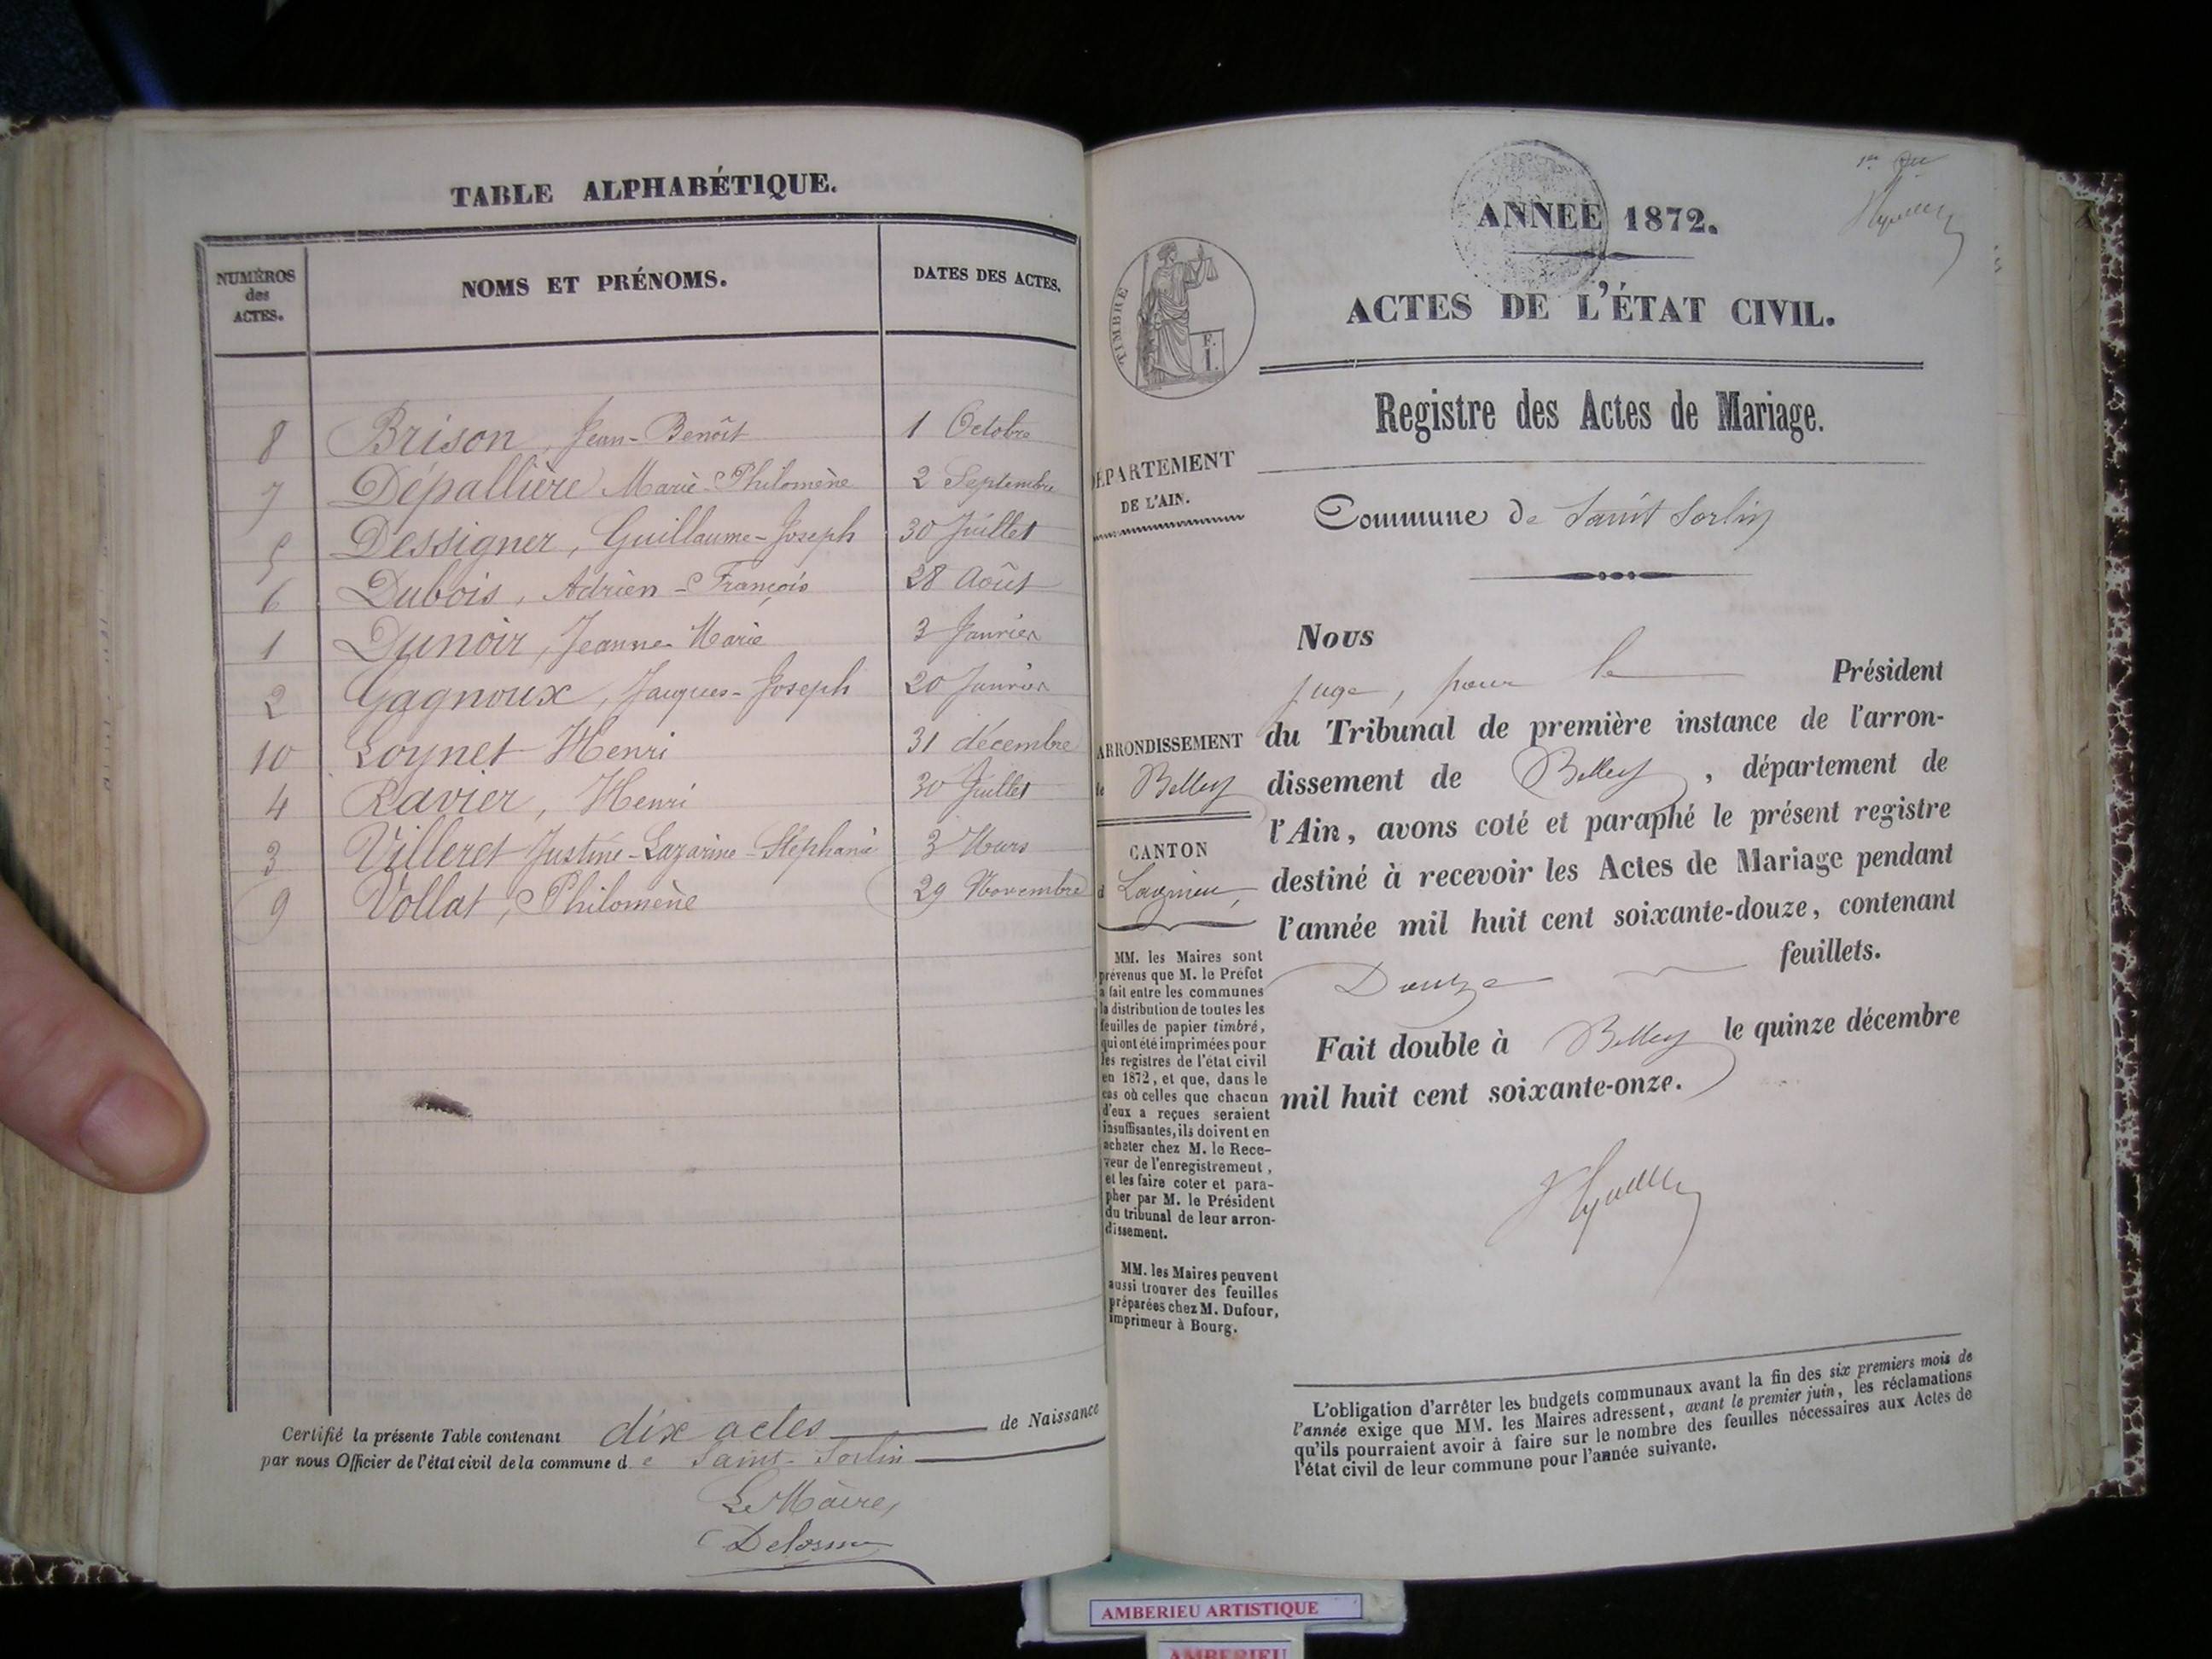 TABLE ALPHABÉTIQUE.
NUMÉROS des ACTES. NOMS ET PRÉNOMS. DATES DES ACTES.
8 Brison, Jean-Benoît 1 Octobre
7 Dépallière Marie-Philomène 2 Septembre
5 Dessigner, Guillaume-Joseph 30 Juillet
6 Dubois, Adrien-François 28 Août
1 Dunoir, Jeanne-Marie 3 Janvier
2 Gagnoux, Jacques-Joseph 20 Janvier
10 Loynet Henri 31 décembre
4 Ravier, Henri 30 Juillet
3 Villeret Justine-Lazarine-Stéphanie 3 Mars
9 Vollat, Philomène 29 Novembre
Certifié la présente Table contenant dix actes de Naissance
par nous Officier de l'état civil de la commune de Saint-Sorlin
Le Maire,
Delorme
ANNÉE 1872.
TIMBRE
F.
1.
ACTES DE L'ÉTAT CIVIL.
Registre des Actes de Mariage.
DÉPARTEMENT
DE L'AIN.
Commune de Saint Sorlin
ARRONDISSEMENT
de Belley
CANTON
d Lagnieu,
MM. les Maires sont
prévenus que M. le Préfet
a fait entre les communes
la distribution de toutes les
feuilles de papier timbré,
qui ont été imprimées pour
les registres de l'état civil
en 1872, et que, dans le
cas où celles que chacun
d'eux a reçues seraient
insuffisantes, ils doivent en
acheter chez M. le Rece-
veur de l'enregistrement,
et les faire coter et para-
pher par M. le Président
du tribunal de leur arron-
dissement.
MM. les Maires peuvent
aussi trouver des feuilles
préparées chez M. Dufour,
imprimeur à Bourg.
Nous
juge, pour le Président
du Tribunal de première instance de l'arron-
dissement de Belley, département de
l'Ain, avons coté et paraphé le présent registre
destiné à recevoir les Actes de Mariage pendant
l'année mil huit cent soixante-douze, contenant
Douze feuillets.
Fait double à Belley le quinze décembre
mil huit cent soixante-onze.
L'obligation d'arrêter les budgets communaux avant la fin des six premiers mois de
l'année exige que MM. les Maires adressent, avant le premier juin, les réclamations
qu'ils pourraient avoir à faire sur le nombre des feuilles nécessaires aux Actes de
l'état civil de leur commune pour l'année suivante.
AMBERIEU ARTISTIQUE
AMBERIEU